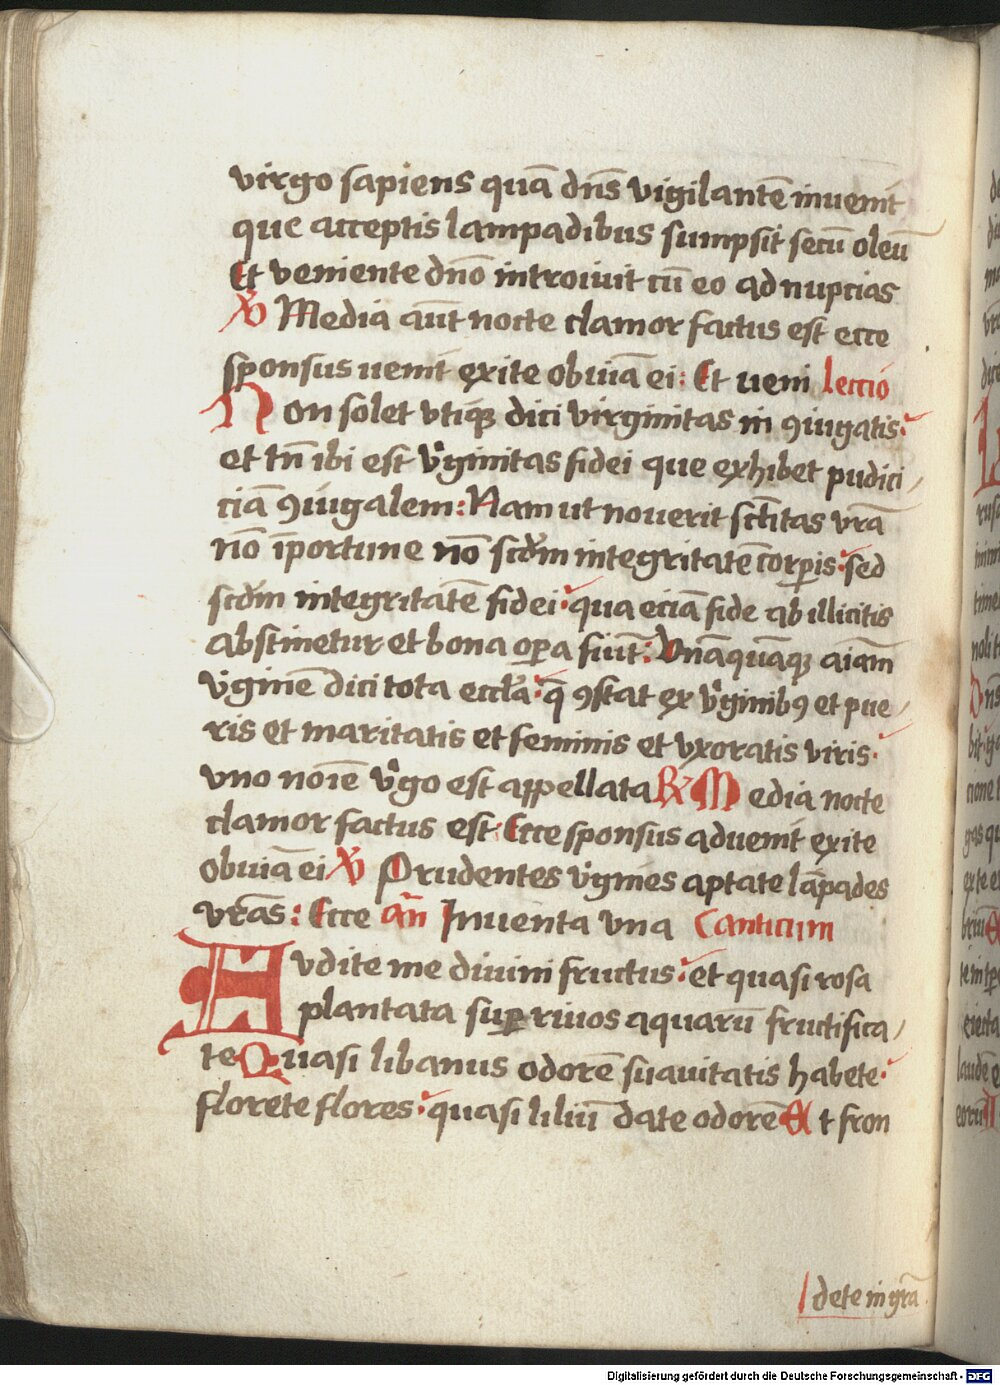 virgo sapiens quā dn̄s vigilantē inuenit
que acceptis lampadibus sumpsit secū oleū
Et veniente dnō introiuit cū eo ad nupcias
℣ Media aūt nocte clamor factus est ecce
sponsus uenit exite obuiā ei: Et ueni lectio
Non solet vtiqꝫ dici virginitas in ꝯiugatis
et tn̄ ibi est v̓ginitas fidei que exhibet pudici/
ciā ꝯiugalem: Nam ut nouerit sctītas vrā
nō īportune nō scdm̄ integritatē corꝑis: sed
scdm̄ integritatē fidei: qua eciā fide ab illicitis
abstinetur et bona oꝑa fiūt: Vnāquāqꝫ aīam
v̓ginē dici tota eccła: q̄ ꝯstat ex v̓ginibꝰ et pue/
ris et maritatis et feminis et vxoratis viris.
vno noīe v̓go est appellata ℟ Media nocte
clamor factus est: Ecce sponsus aduenit exite
obuiā ei ℣ Prudentes v̓gines aptate lāpades
vrās: Ecce an̄ Inuenta vna Canticum
Avdite me diuini fructus: et quasi rosa
plantata suꝑ riuos aquarū fructifica/
te Quasi libanus odorē suauitatis habete.
florete flores: quasi liliū date odorē Et fron
dete in grā
Digitalisierung gefördert durch die Deutsche Forschungsgemeinschaft - DFG